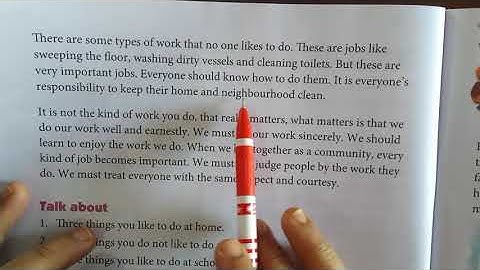 There are some types of work that no one likes to do. These are jobs like
sweeping the floor, washing dirty vessels and cleaning toilets. But these are
very important jobs. Everyone should know how to do them. It is everyone's
responsibility to keep their home and neighbourhood clean.
It is not the kind of work you do, that really matters, what matters is that we
do our work well and earnestly. We must our work sincerely. We should
learn to enjoy the work we do. When we together as a community, every
kind of job becomes important. We must judge people by the work they
do. We must treat everyone with the same respect and courtesy.
Talk about
1. Three things you like to do at home.
2. things you do not like to do
things you like to do at